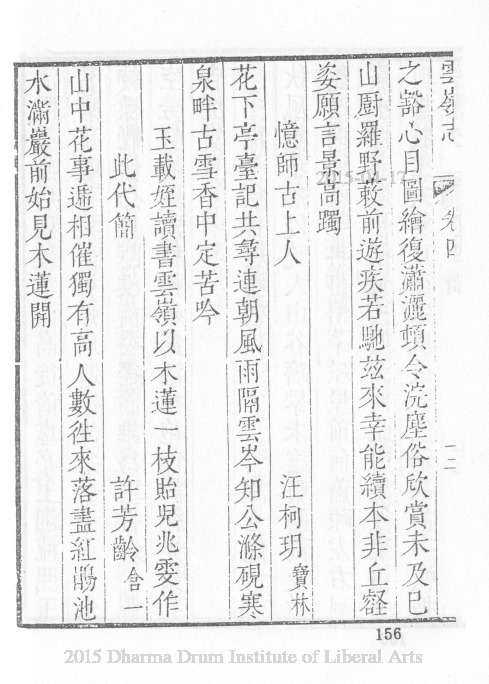 雲嶺志
卷四
十二
之豁心目圖繪復瀟灑頓令浣塵俗欣賞未及已
山廚羅野蔌前遊疾若馳茲來幸能續本非丘壑
姿願言景高躅
憶師古上人
汪柯玥寶林
花下亭臺記共尋連朝風雨隔雲岑知公滌硯寒
泉畔古雪香中定苦吟
玉載姪讀書雲嶺以木蓮一枝貽兒兆雯作
此代簡
許芳齡含一
山中花事遞相催獨有高人數往來落盡紅鵑池
水滿巖前始見木蓮開
156
2015 Dharma Drum Institute of Liberal Arts